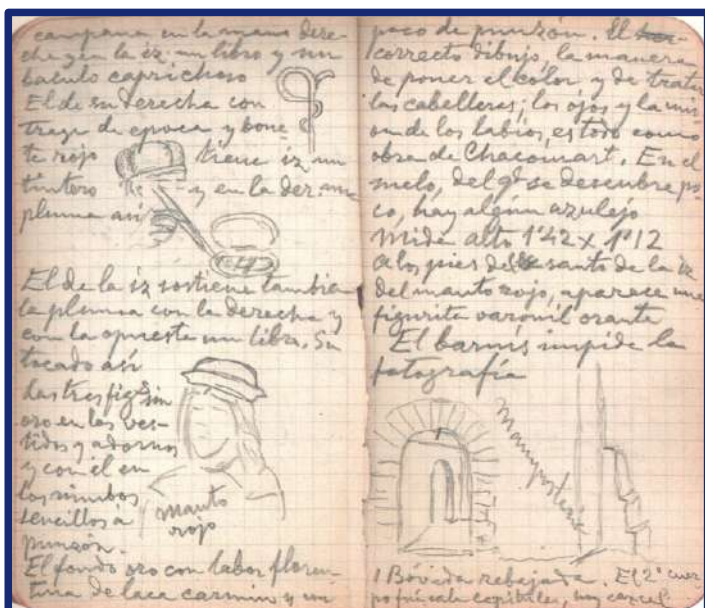 campana en la mano dere-
cha y en la iz. un libro y un
báculo caprichoso
El de su derecha con
traje de época y bone-
te rojo tiene iz. un
tintero y en la der. una
pluma así
El de la iz sostiene también
la pluma con la derecha y
con la opuesta un libro. Su
tocado así
Las tres figs sin
oro en los ves-
tidos y adornos
y con él en
los nimbos
sencillos a
punzón.
manto
rojo
El fondo oro con labor floren-
tina de laca carmín y un
poco de punzón. El
correcto dibujo, la manera
de poner el color y de tratar
las cabelleras; los ojos y la
de los labios, es todo como
obra de Chacomart. En el
suelo, del ql se descubre po-
co, hay algún azulejo
Mide alto 1'42 x 1'12
A los pies del santo de la iz
del manto rojo, aparece una
figurita varonil orante
El barniz impide la
fotografía
Mampostería
1 Bóveda rebajada. El 2º cuer-
po capiteles, muy